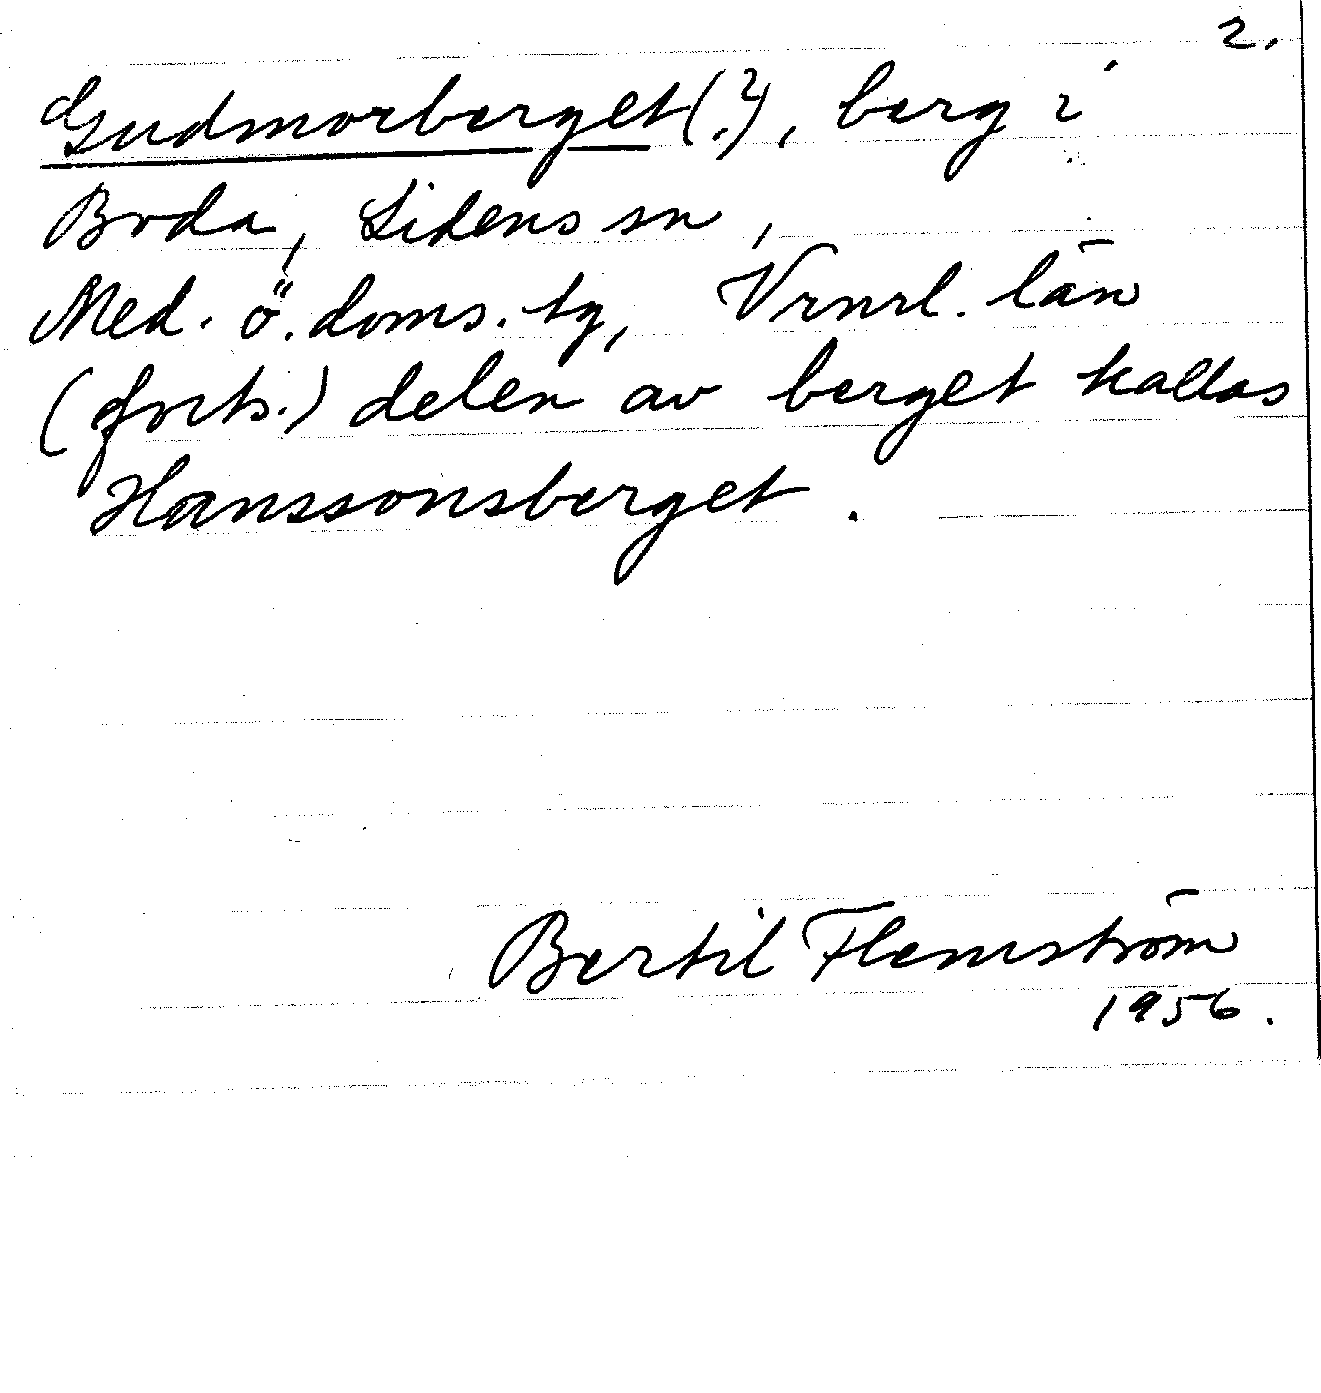 2.
Gudmorberget(?), berg i
Boda, Lidens sn,
Med. ö. doms. tg, Vrnrl. län
(forts.) delen av berget kallas
Hanssonsberget.
Bertil Flemström
1956.